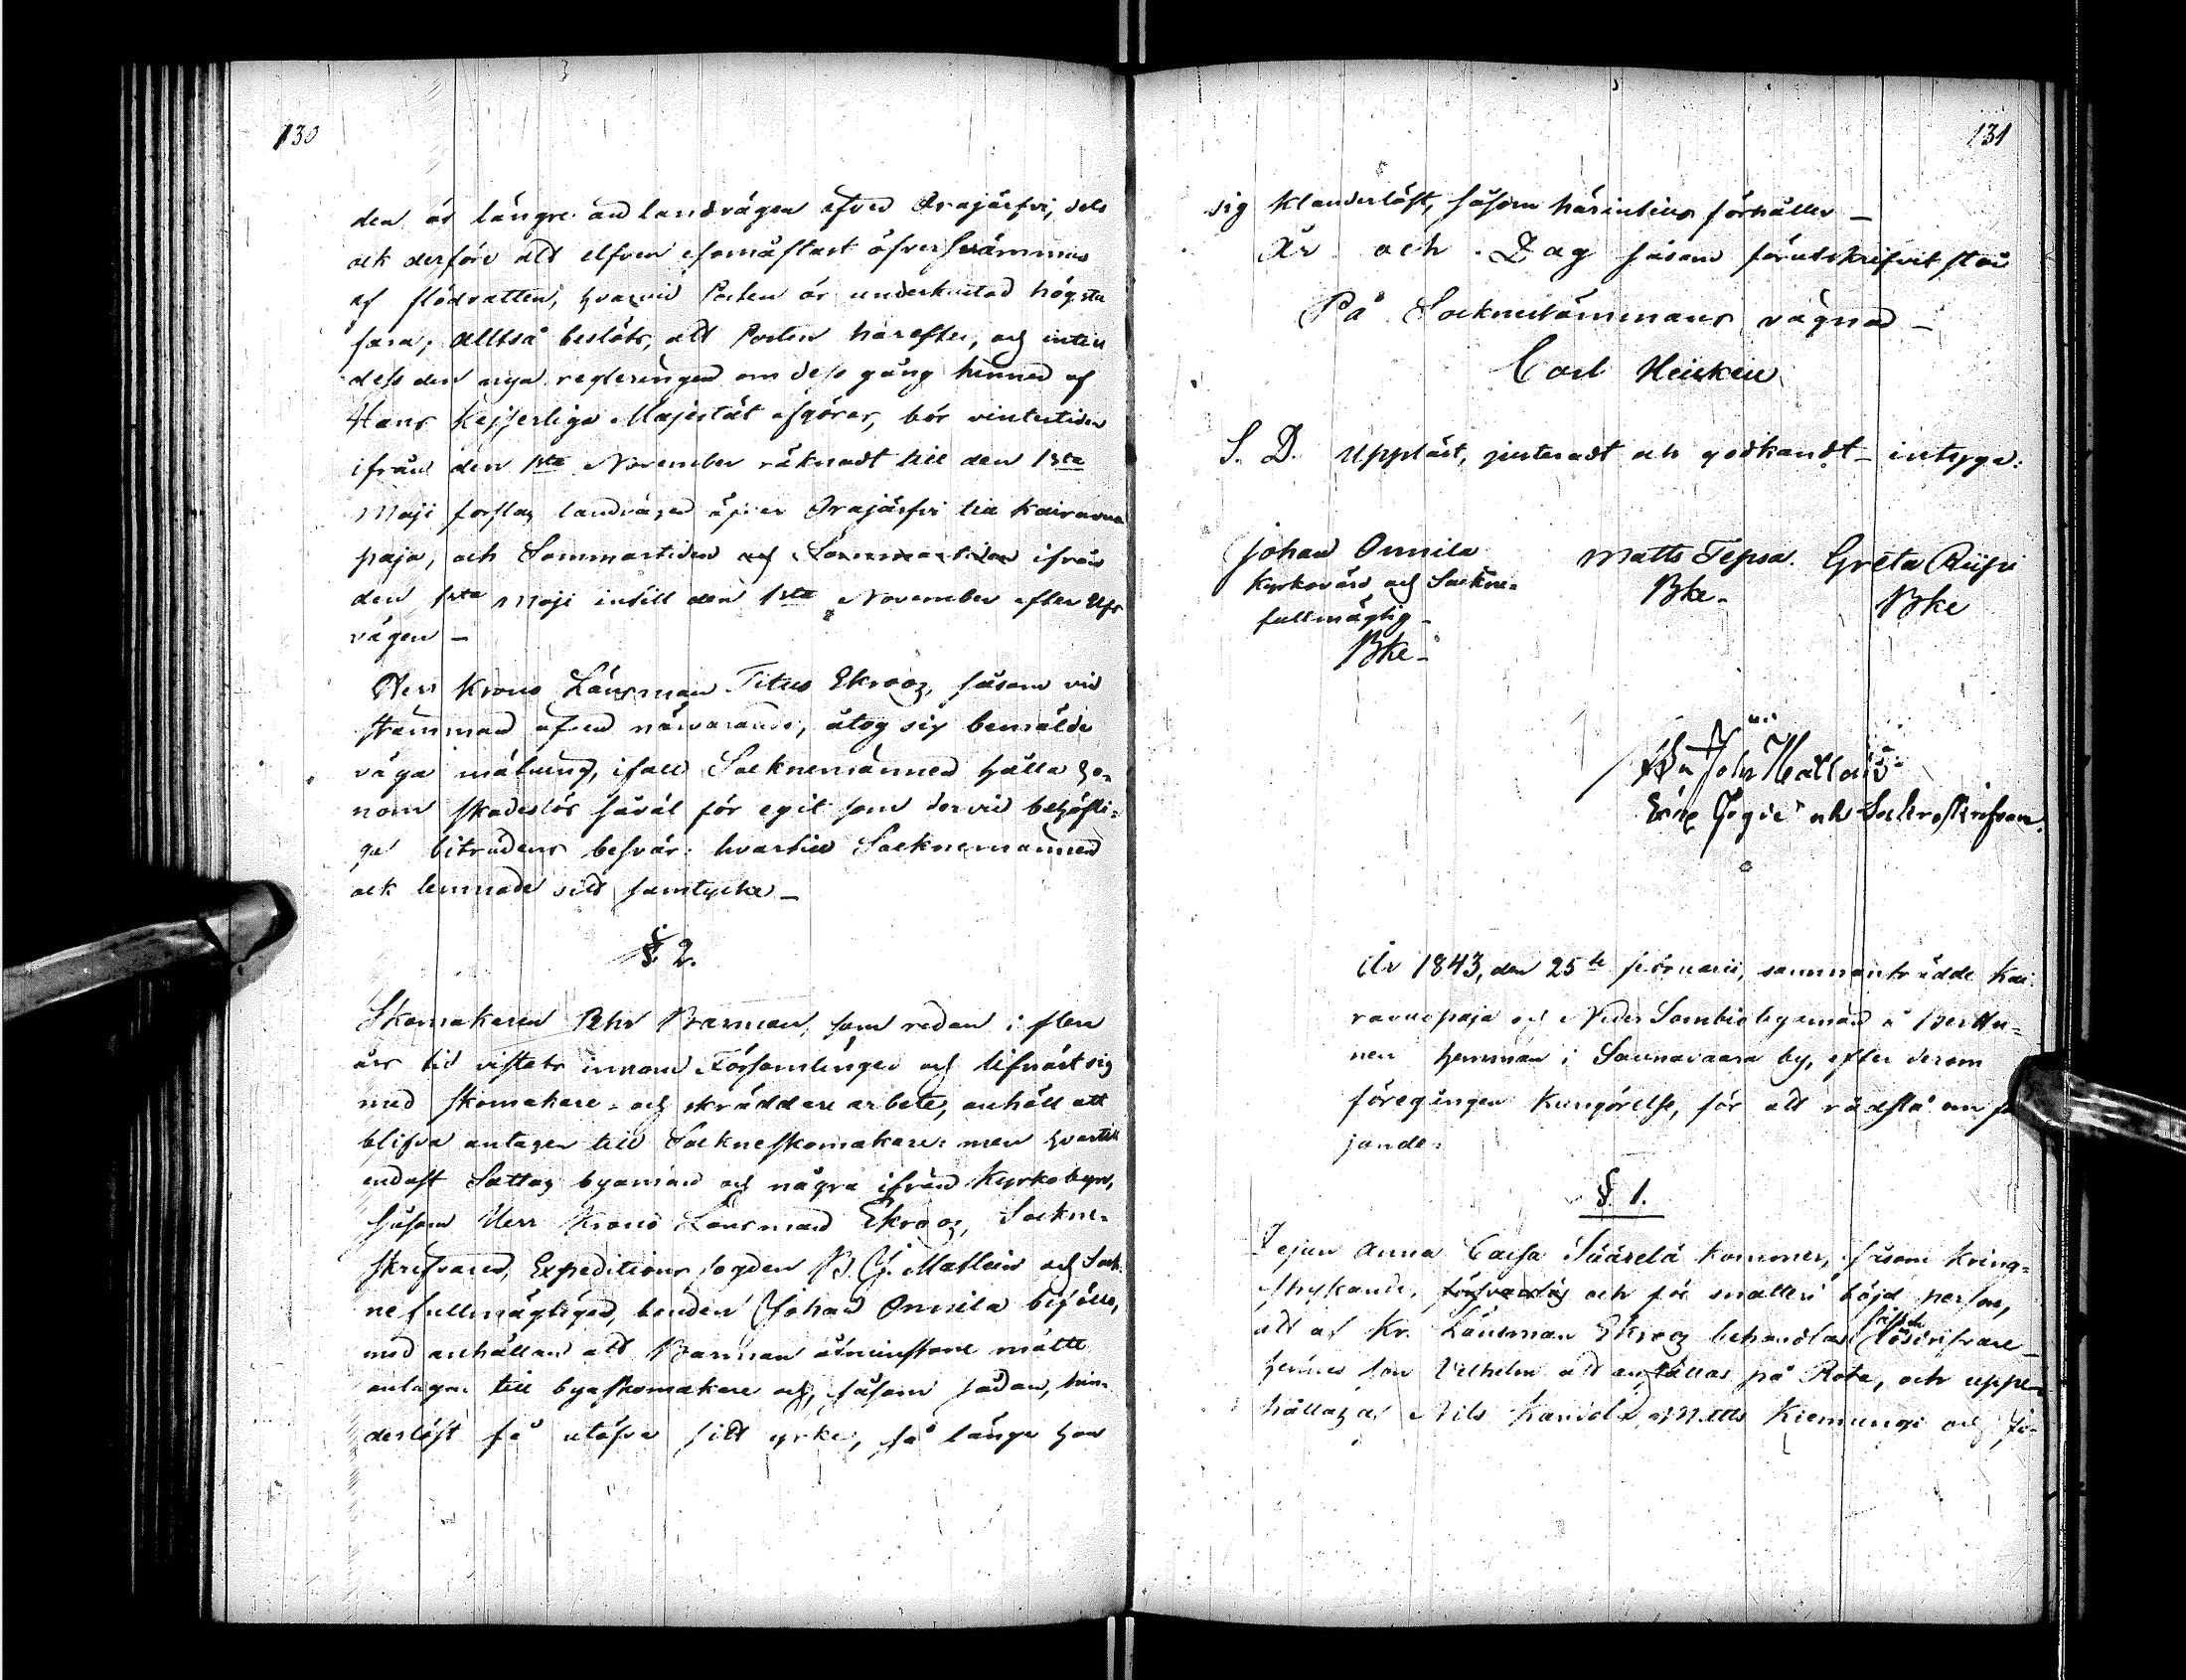 130
den är längre än landvägen öfver Orajärfvi, dels
ock derföre att elfven somåftast öfversvämmas
af flödvatten, hvarvid Posten är underkastad högsta
fara; alltså beslöts, att Posten härefter, och intill
dess den nya regleringen om dess gång hinner af
Hans Kejserliga Majestät afgöras, bör vintertiden
ifrån den 1sta November räknadt till den 1sta
Maji forslas landvägen öfver Orajärfvi till Kairavuo
paja, och Sommartiden och Sommartiden ifrån
den 1sta Maji intill den 1sta November efter Elfs
vägen –
Herr Krono Länsman Titus Ekroos, såsom vid
stämman äfven närvarande, åtog sig bemälde
väga mätning, ifall Socknemännen hålla ho-
nom skadeslös såväl för egit som dervid behöfli-
ga biträdens besvär: hvartill Socknemännen
ock lemnade sitt samtycke –
§ 2.
Skomakaren Pehr Barman, som redan i flere
års tid vistats innom Församlingen och lifnärt sig
med skomakare- och skräddare arbete, anhöll att
blifva antagen till Sockneskomakare: men hvartill
endast Sattas byamän och några ifrån Kyrkobyn,
såsom Herr Krono Länsman Ekroos, Sockne-
skrifvaren, Expeditions fogden B. J. Matlein och Sock-
nefullmägtigen, bonden Johan Onnila biföllo,
med anhållan att Barman åtminstone måtte
antagas till byaskomakare och, såsom sådan, hin-
derlöst få utöfva sitt yrke, så länge han
131
sig klanderlöst, såsom härintills förhåller –
År och Dag såsom förutskrifvit står
På Socknestämmans vägnar –
Carl Heickell
S. D. Uppläst, justeradt och godkändt – intyga:
Johan Onnila
Kyrkovärd och Sockne-
fullmägtig –
Bke –
Matts Tepsa
Bke –
Greta Riipi
Bke
och Sockneskrifvare.
År 1843, den 25te februarii, sammanträdde Kai-
ravuopaja och Neder Sombio byamän å Perttu-
nen hemman i Saunavaara by, efter derom
föregången Kungörelse, för att rådslå om föl
jande:
§. 1.
Pejan Anna Caisa Säärelä kommer, såsom kring-
strykande, försvarslös och för snatteri böjd person,
att af Kr. Länsman Ekroos behandlas såsom lösdrifvare –
hennes son Vilhelm att anställas på Rote, och uppe-
hållas af Nils Kandola, Matts Kiemungi och